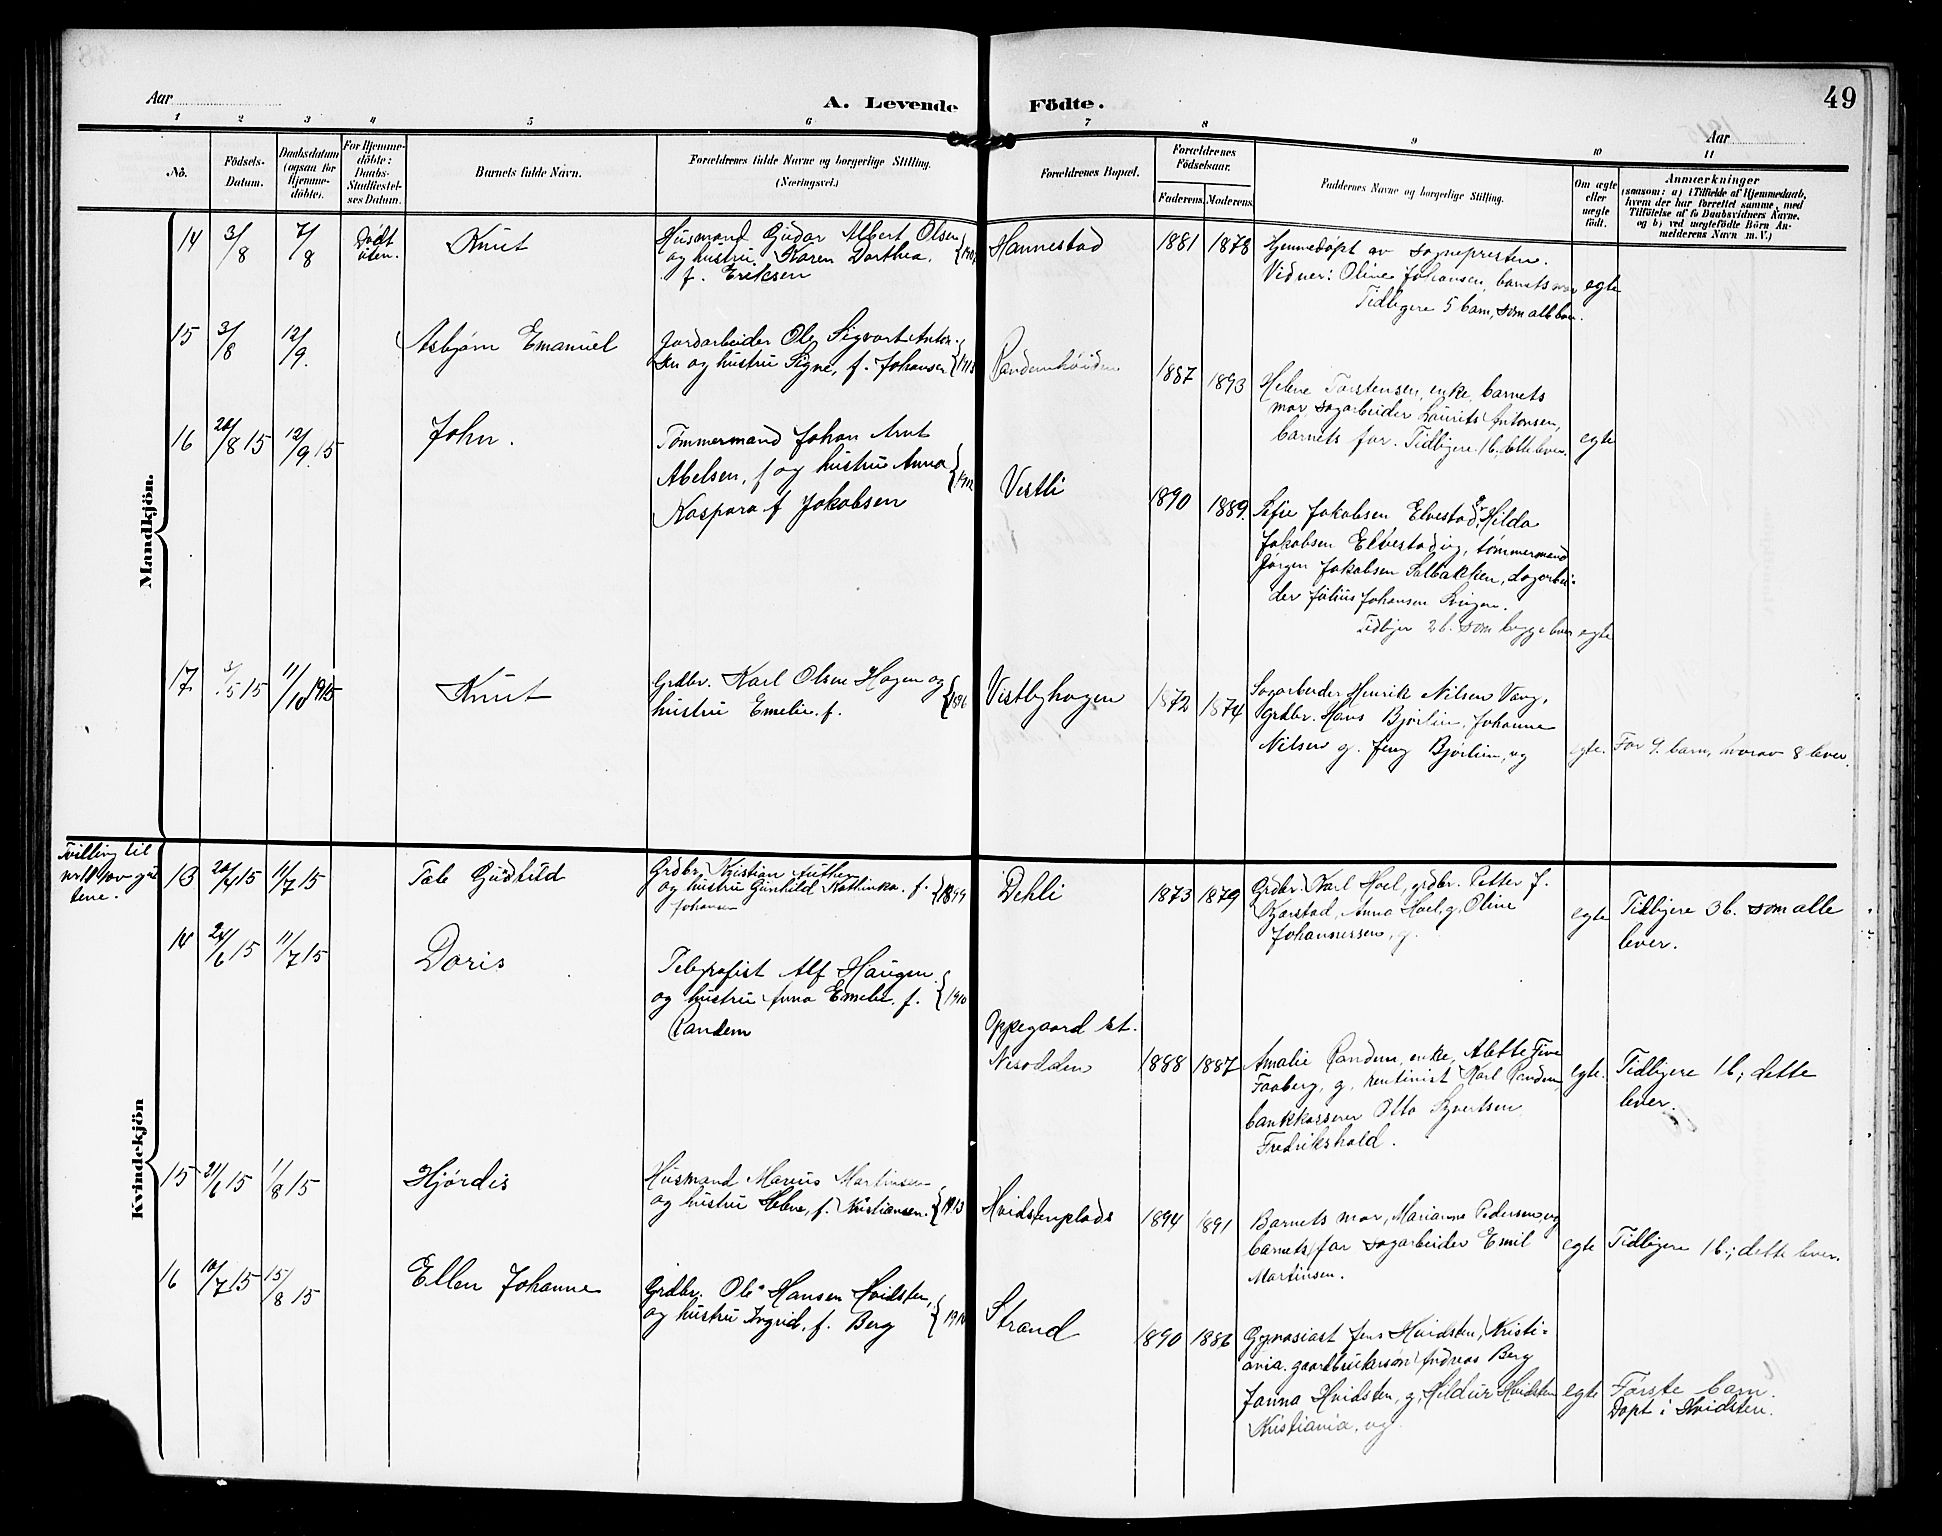 49
Aar
A. Levende Födte.
Aar
1 2 3 4 5 6 7 8 9 10 11
No.
Födsels-Datum.
Daabsdatum (ogsaa for Hjemme-döbte).
For Hjemme-döbte: Daabs-Stadfæstel-ses Datum.
Barnets fulde Navn.
Forældrenes fulde Navne og borgerlige Stilling. (Næringsvei.)
Forældrenes Bopæl.
Forældrenes Födselsaar.
Faderens Moderens
Faddernes Navne og borgerlige Stilling.
Om ægte eller uægte födt.
Anmærkninger
(saasom: a) i Tilfælde af Hjemmedaab,
hvem der har forrettet samme, med
Tilföielse af to Daabsvidners Navne,
og b) ved uægtefödte Börn An-
melderens Navn m. V.)
Mandkjön.
14 3/8 7/8 Knut
Husmand Gudar Albert Olsen
og hustru Karen Dorthea.
f. Eriksen
Hannestad 1881 1878
Hjemmedøpt av sognepresten.
Vidner: Oline Johansen, barnets mor egte
Tidligere 5 barn, som alle lever.
15 3/8 12/9. Asbjørn Emanuel
Jordarbeider Ole Sigvart Anton-
sen og hustru Signe, f. Johansen
1887 1893
Helene Torstensen, enke, barnets
mor, sagarbeider Laurits Antonsen,
barnets far. Tidligere 1 b., dette lever. egte
16 20/8 15 12/9 15 John.
Tømmermand Johan Arnt
Abelsen, f og hustru Anna
Kaspara f Jakobsen
Vestli 1890 1889.
Sefie Jakobsen Elvestad, Hilda
Jakobsen Elvestad ug, tømmermand
Jørgen Jakobsen Solbakken, dagarbei-
der Julius Johansen
Tidliger 2 b. som begge lever egte
17 /5 15 11/10 1915 Knut
Grdbr. Karl Olsen Hagen og
hustru Emelie f. 1896
Vestbyhagen 1872 1874
Sagarbeider Henrik Nilsen Vaag,
Grdbr. Hans Bjørlien, Johanne
Nilsen g. Jeny Bjørlien, ug
egte. Før 9. barn, hvorav 8 lever.
Kvindekjön
Tvilling til
nr 11 av gut
tene.
13 20/4 15 11/7 15 Tale Gudhild
Grdbr. Kristian Muther
og hustru Gunhild Kathinka. f. 1899
Johansen
Dehli 1873 1879
Grdbr. Karl Hoel, grdbr. Petter J.
Kjærstad, Anna Hoel, g, Oline
Johannessen, g.
egte Tidligere 3 b. som alle
lever.
14 24/6 15 11/7 15 Doris
Telegrafist Alf Haugen
og hustru Anna Emelie. f. 1910
Randem
Oppegaard st.
Nesodden 1888 1887
Amalie Randem, enke, Alette Five
Faaberg, g, rentinist Karl Randem,
bankkasserer Otto Syvertsen
Fredrikshald.
egte. Tidligere 1 b; dette
lever.
15 21/6 15 1/8 15 Hjørdis
Husmand Marius Martinsen
og hustru Helene, f. Kristiansen. 1913
Hvidstenplads 1894 1891
Barnets mor, Marianne Pedersen, ug
barnets far sagarbeider Emil
Martinsen.
egte Tidligere 1 b.; dette lever.
16 10/7 15 15/8 15 Ellen Johanne
Grdbr. Ole Hansen Hvidsten,
og hustru Ingrid, f. Berg
Strand 1890 1886
Gymnasiast Jens Hvidsten, Kristi-
ania. gaardbrukersøn Andreas Berg
Janna Hvidsten, g, Hildur Hvidsten
Kristiania, ug
egte Første barn.
Døpt i Hvidsten.